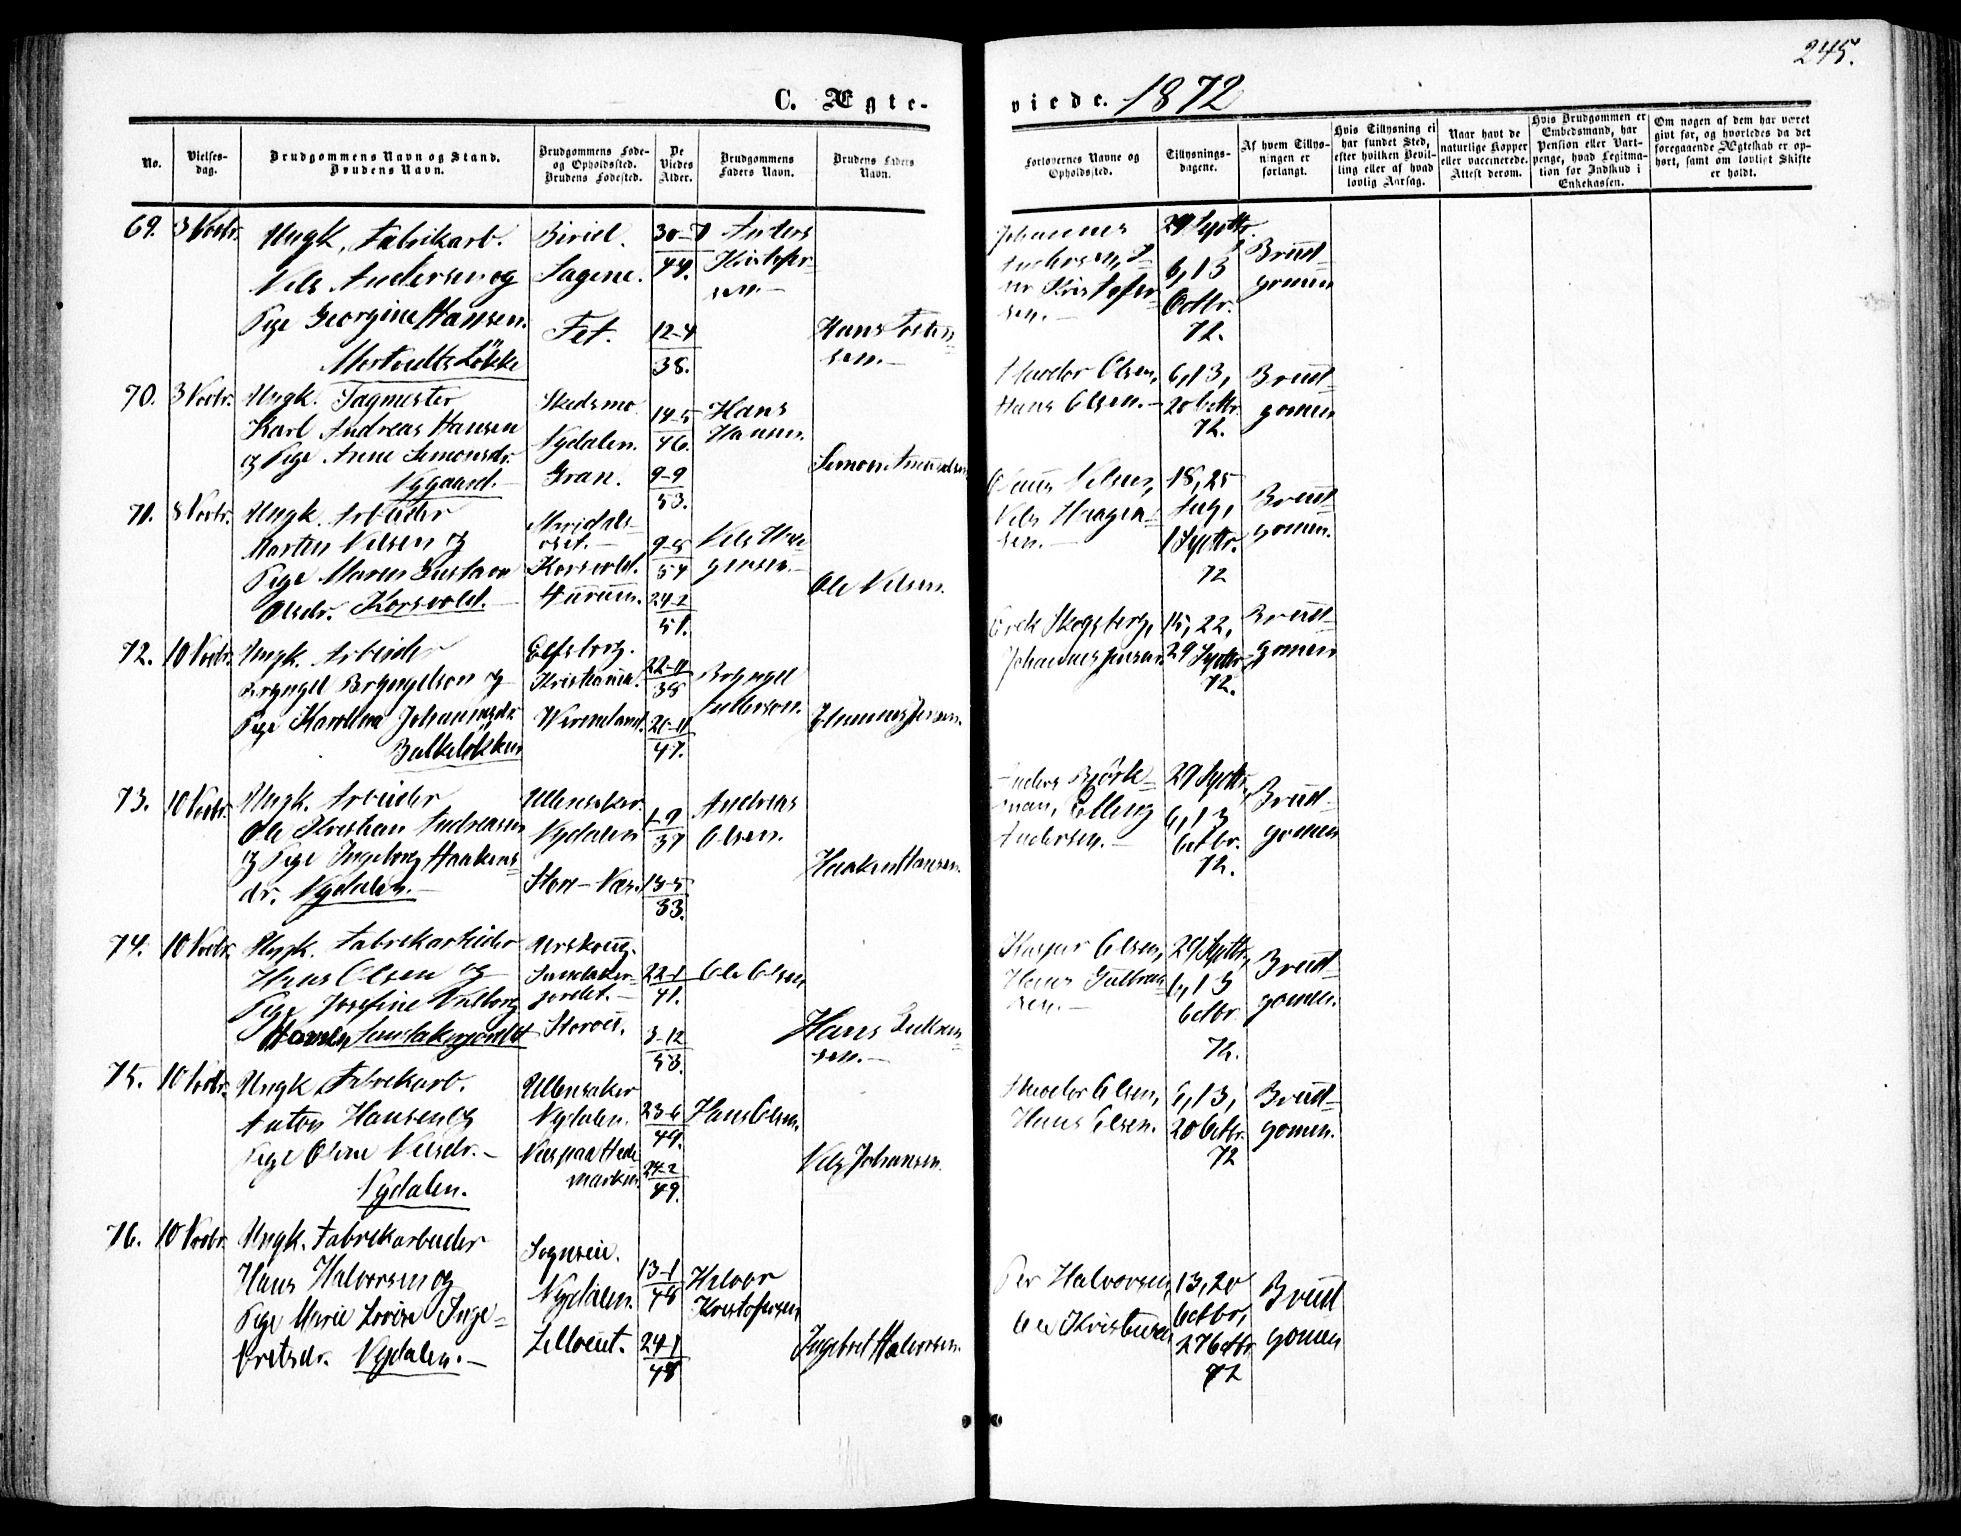 245.
C. Ægte-
viede. 1872
No.
Vielses-
dag.
Brudgommens Navn og Stand.
Brudens Navn.
Brudgommens Føde-
og Opholdssted.
Brudens Fødested.
De
Viedes
Alder.
Brudgommens
Faders Navn.
Brudens Faders
Navn.
Forlovernes Navne og
Opholdssted.
Tillysnings-
dagene.
Af hvem Tillys-
ningen er
forlangt.
Hvis Tillysning ei
har fundet Sted,
efter hvilken Bevil-
ling eller af hvad
lovlig Aarsag.
Naar havt de
naturlige Kopper
eller vaccinerede.
Attest derom.
Hvis Brudgommen er
Embedsmand, har
Pension eller Vart-
penge, hvad Legitma-
tion for Indskud i
Enkekassen.
Om nogen af dem har været
gift før, og hvorledes da det
foregaaende Ægteskab er op-
hørt, samt om lovligt Skifte
er holdt.
69.
3 Novbr.
Ungk. Fabrikarb.
Nels Andersen og
Pige Georgine Hansen.
Løkke
Birid.
Sagene.
Fet.
30-7
44.
12-4
38.
Anders
Kristofer-
sen.-
Hans Tosten-
sen.-
Johannes
Andersen,
Kristofer-
sen.-
29 Septbr.
6, 13
Octbr.
72.
Brud-
gomen
70.
3 Novbr.
Ungk. Tagmester
Karl Andreas Hansen
og Pige Anne Simonsdr.
Nygaard.-
Skedsmo
Nydalen.
Gran.
14-5
46.
9-9
53.
Hans
Hansen.
Simon Amundsen
Olsen,
Hans Olsen.-
6, 13,
20 Octbr.
72.
Brud-
gomen
71.
Novbr.
Ungk. Arbeider
Martin Nelsen og
Pige Maren Gustava
Olsdr. Korsvold.-
Maridals-
oset.-
Korsvold.
Hurum.
9-5
54
24-2
51.
Nels Haa-
gensen.-
Ole Nelsen.
Nelsen,
Nels Haagen-
sen.-
18, 25
Aug,
1 Septbr.
72
Brud-
gomen.
72.
10 Novbr.
Ungk. Arbeider
Bryngel Bryngelson og
Pige Karolina Johannesdr.
Balkeløkken
Elfsborg.
Kristiania.
Wermeland.
22-11
38
20-11
47.
Bryngel
Anderson.
Johannes Jensen.
Erik Skogsberg,
Johannes Jensen.
15, 22,
29 Septbr.
72.
Brud-
gomen
73.
10 Novbr.
Ungk. Arbeider
Ole Kristian Andreasen
og Pige Ingeborg Haakens-
dr. Nydalen.-
Ullensaker
Nydalen
Stor-Næs.
1-9
37
13-5
53.
Andreas
Olsen.
Haaken Hansen.
Anders Björk-
man, Elling
Andersen.-
29 Septbr.
6, 13
Octbr.
72.
Brud-
gomen
74.
10 Novbr.
Ungk. Fabrikarbeider
Hans Olsen og
Pige Josefine Valborg
Hansen, Sandakerjordet
Urskoug.
Sandaker-
jordet.-
22-1
41.
3-12
53.
Ole Olsen
Hans
sen.-
Kaspar Olsen,
Hans Gulbran-
sen.-
29 Septbr,
6, 13
Octbr.
72.
Brud-
gomen.
75.
10 Novbr.
Ungk. Fabrikarb.
Anton Hansen og
Pige Oline Nelsdr.-
Nydalen.
Ullensaker
Nydalen.
Næs paa Hede-
marken.
23-6
49.
24-2
49.
Hans Olsen.
Nels Johansen.
Olsen,
Hans Olsen.
6, 13,
20 Octbr.
72
Brud-
gomen.
76.
10 Novbr.
Ungk. Fabrikarbeider
Hans Halvorsen og
Pige Marie Lovise Inge-
bretsdr. Nydalen.-
Nydalen.
13-1
48
24-1
48
Halvor
Kristofersen
Ingebret Halvorsen.
Per Halvorsen,
Ole Kristensen
13, 20
Octbr,
27 Octbr.
72
Brud
gomen